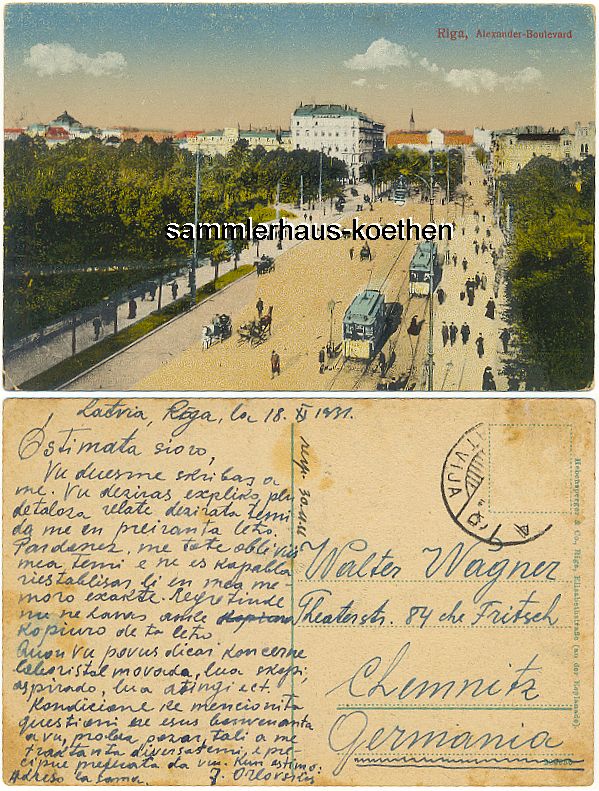 Riga, Alexander-Boulevard
sammlerhaus-koethen
Latvia, Riga, la 18. XI 1931.
Estimata sioro,
Vu duesme skribas a
me. Vu deziras expliko plu
detaloza relate dezirata temi
da me en preiranta letro.
Pardonez, me tote obliviis
mea temi e ne es kapabla
riestablisar li en mea me-
moro exakte. Regretinde
me ne havas anke
kopiuro de ta letro
Quon vu povus dicar koncerne
laboristal movado, lua skopi,
aspirado, lua atingi ect.
Kondicione ke mencionita
questioni ne esus konvenanta
a vu, probez pozar, tali a me
traktanta diversa temi, e pre-
cipue preferata da vu. Kun estimo.
Adreso la sama. J. Orlovskis
resp. 30.11.31
LATVIJA
Walter Wagner
Theaterstr. 84 che Fritsch
Chemnitz
Germania
Hebensperger & Co., Riga, Elisabethstraße (an der Esplanade).